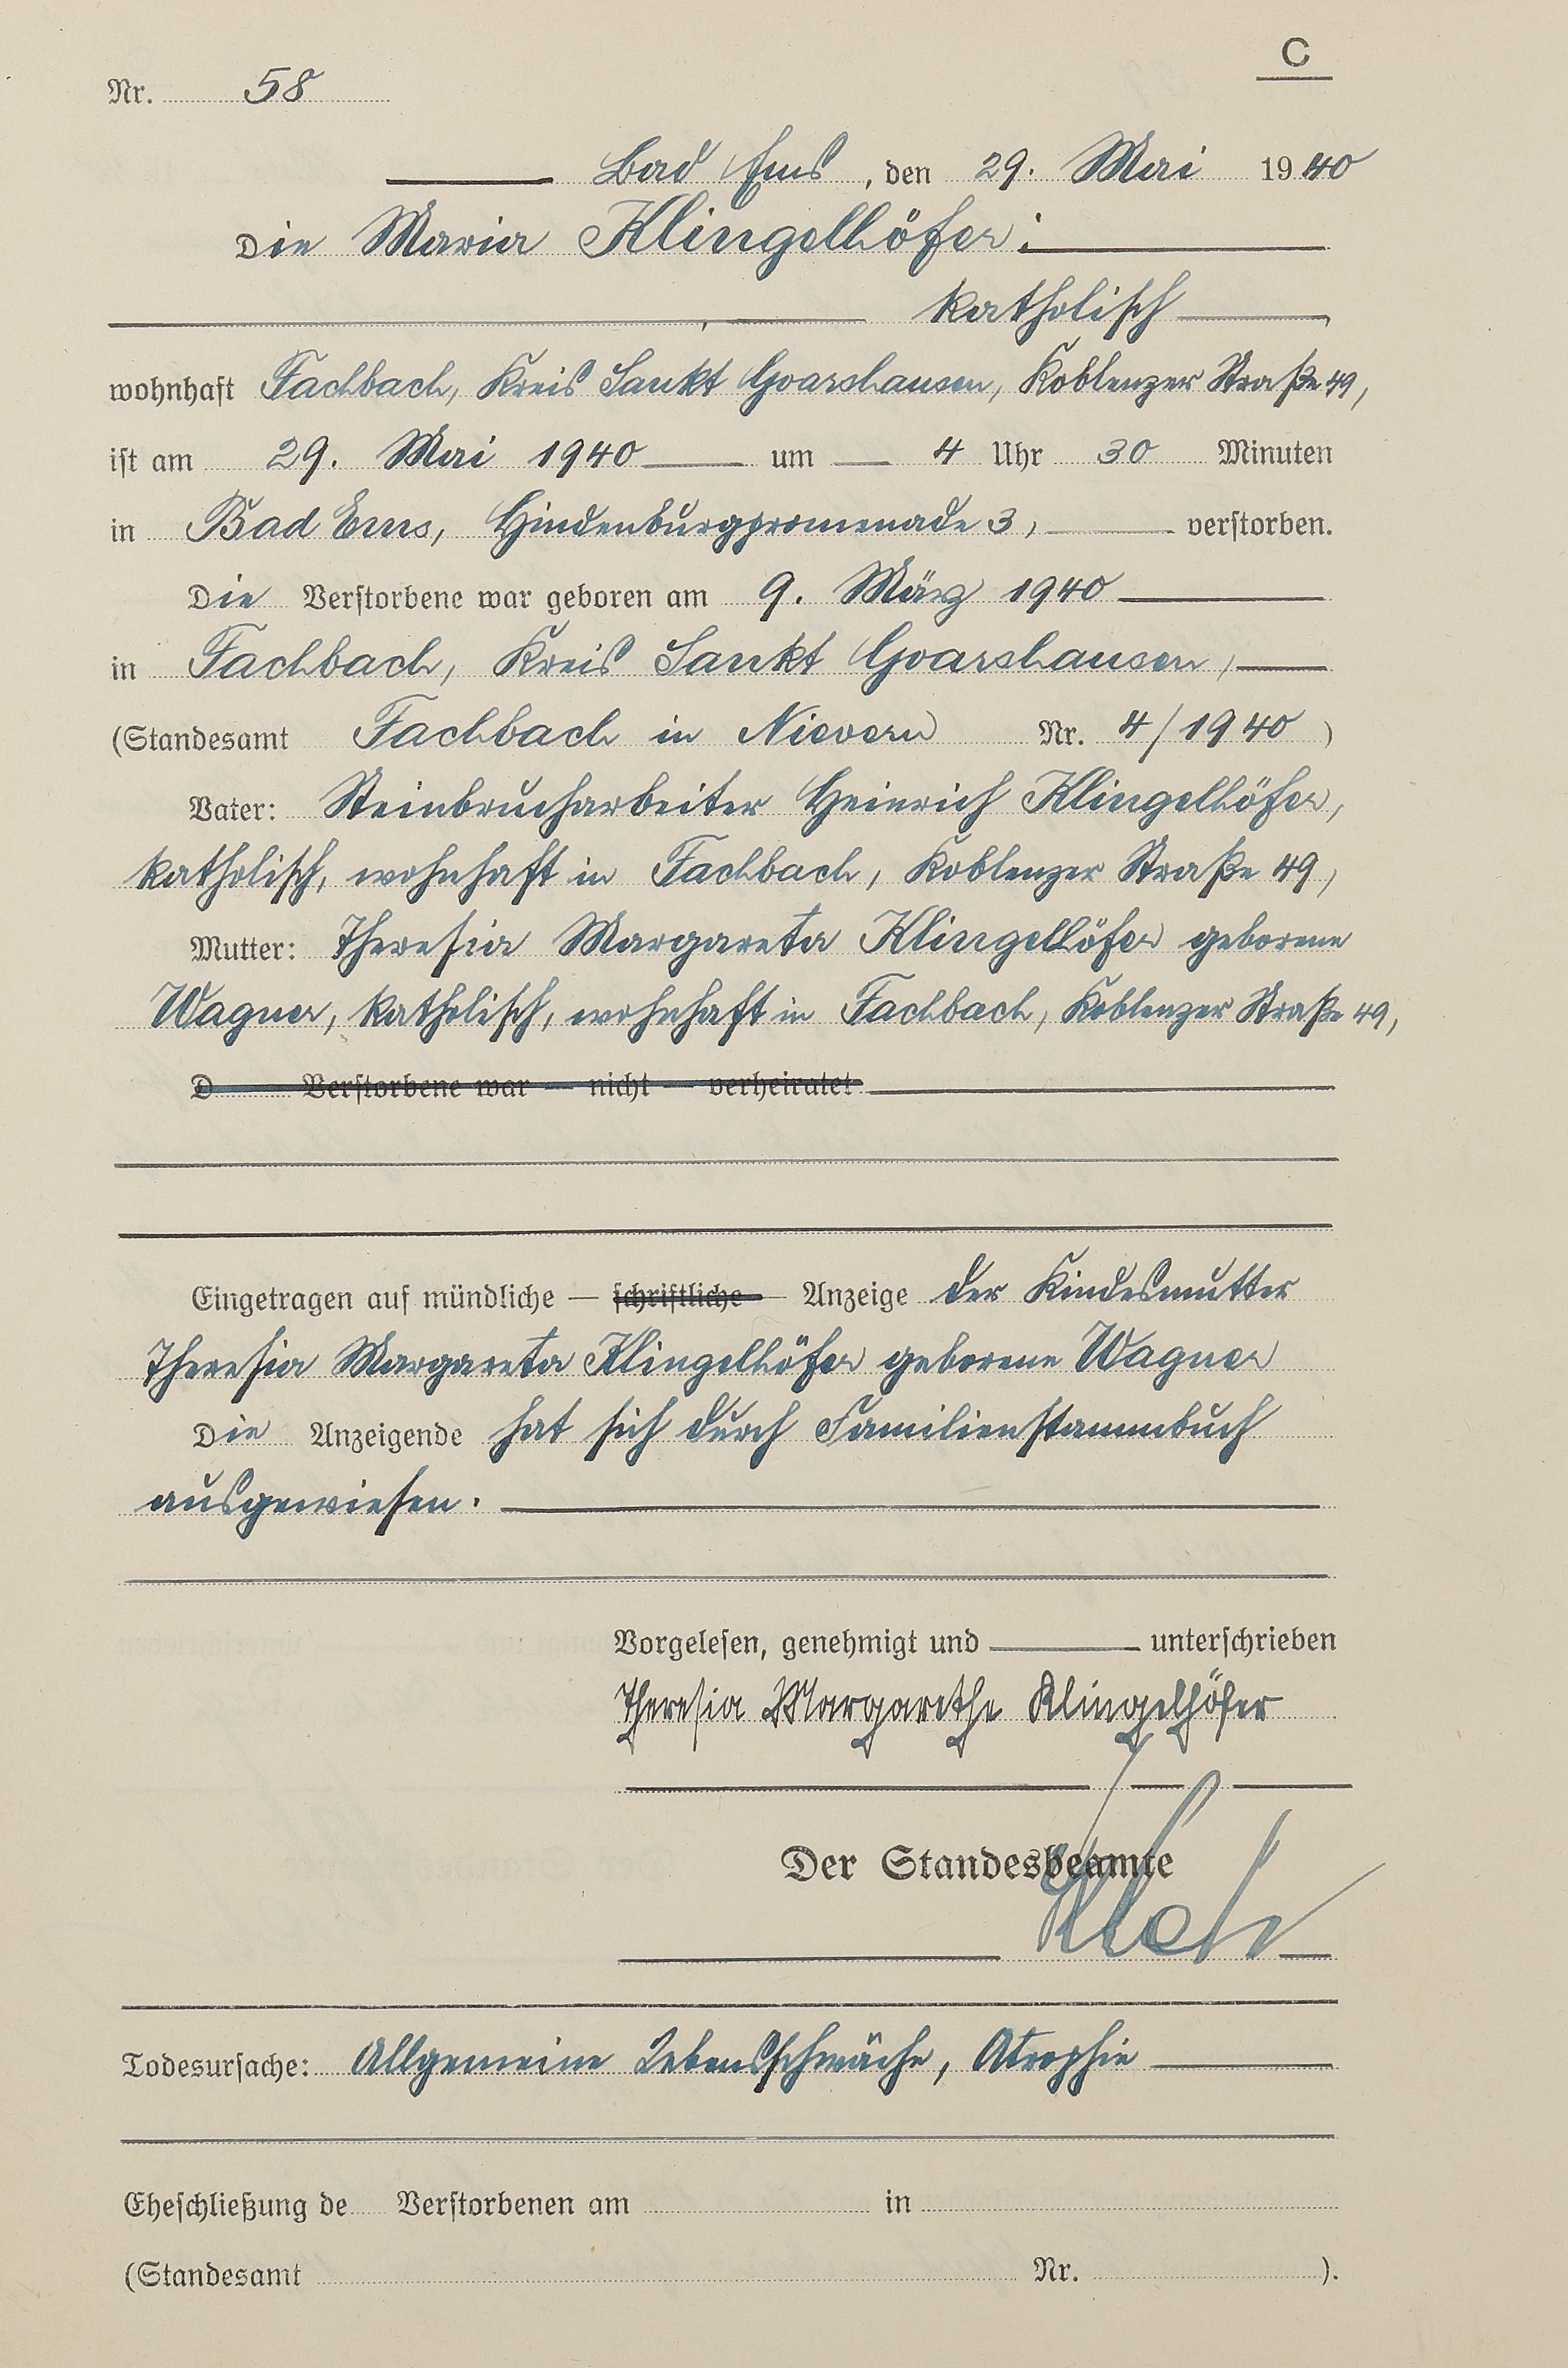 C
Nr. 58
Bad Ems, den 29. Mai 1940
Die Maria Klingelhöfer;
, katholisch,
wohnhaft Fachbach, Kreis Sankt Goarshausen, Koblenzer Straße 49,
ist am 29. Mai 1940 um 4 Uhr 30 Minuten
in Bad Ems, Hindenburgpromenade 3, verstorben.
Die Verstorbene war geboren am 9. März 1940
in Fachbach, Kreis Sankt Goarshausen,
(Standesamt Fachbach in Nievern Nr. 4/1940)
Vater: Steinbrucharbeiter Heinrich Klingelhöfer,
katholisch, wohnhaft in Fachbach, Koblenzer Straße 49,
Mutter: Theresia Margareta Klingelhöfer geborene
Wagner, katholisch, wohnhaft in Fachbach, Koblenzer Straße 49,
D Verstorbene war — nicht — verheiratet
Eingetragen auf mündliche — schriftliche — Anzeige der Kindesmutter
Theresia Margareta Klingelhöfer geborene Wagner
Die Anzeigende hat sich durch Familienstammbuch
ausgewiesen.
Vorgelesen, genehmigt und unterschrieben
Theresia Margarethe Klingelhöfer
Der Standesbeamte
Todesursache: Allgemeine Lebensschwäche, Atrophie
Eheschließung de Verstorbenen am in
(Standesamt Nr. ).